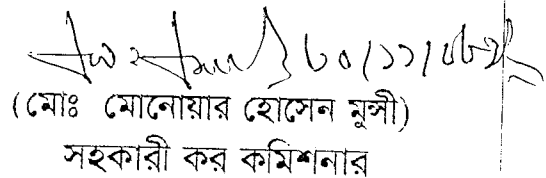 (মোঃ মোনোয়ার হোসেন মুন্সী)
সহকারী কর কমিশনার